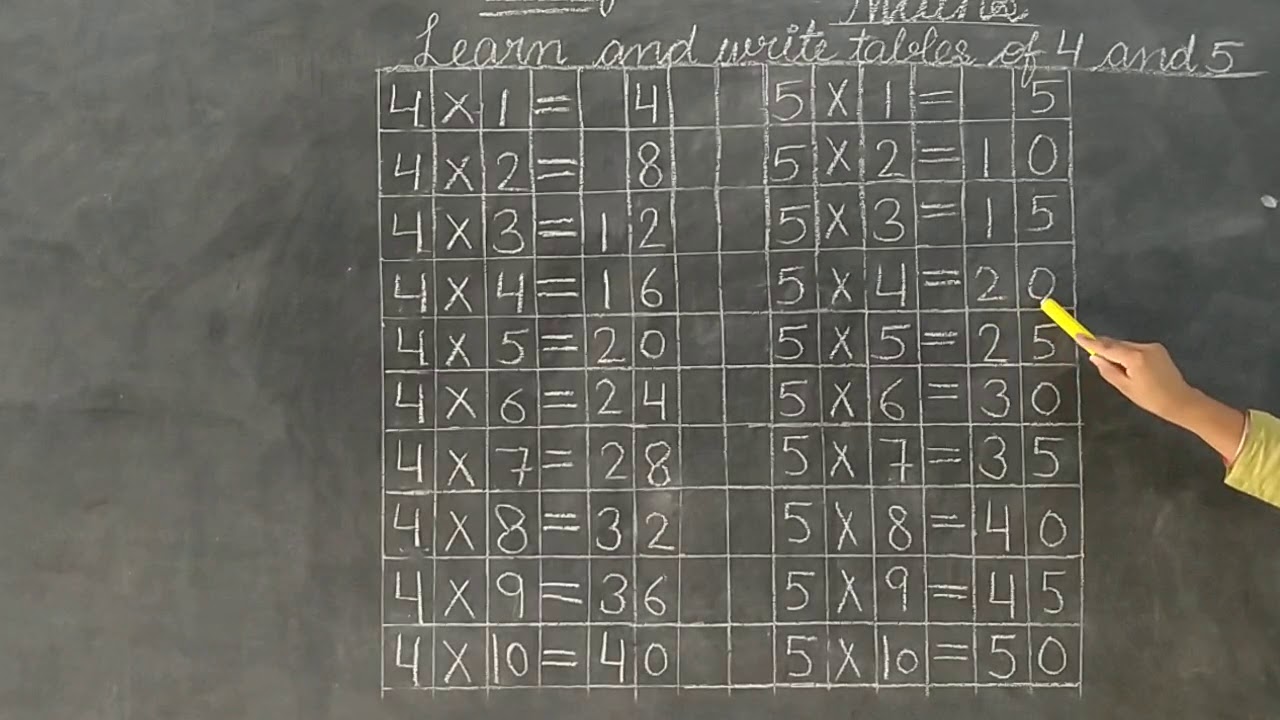 Maths
Learn and write tables of 4 and 5
4 X 1 = 4 5 X 1 = 5
4 X 2 = 8 5 X 2 = 10
4 X 3 = 12 5 X 3 = 15
4 X 4 = 16 5 X 4 = 20
4 X 5 = 20 5 X 5 = 25
4 X 6 = 24 5 X 6 = 30
4 X 7 = 28 5 X 7 = 35
4 X 8 = 32 5 X 8 = 40
4 X 9 = 36 5 X 9 = 45
4 X 10 = 40 5 X 10 = 50